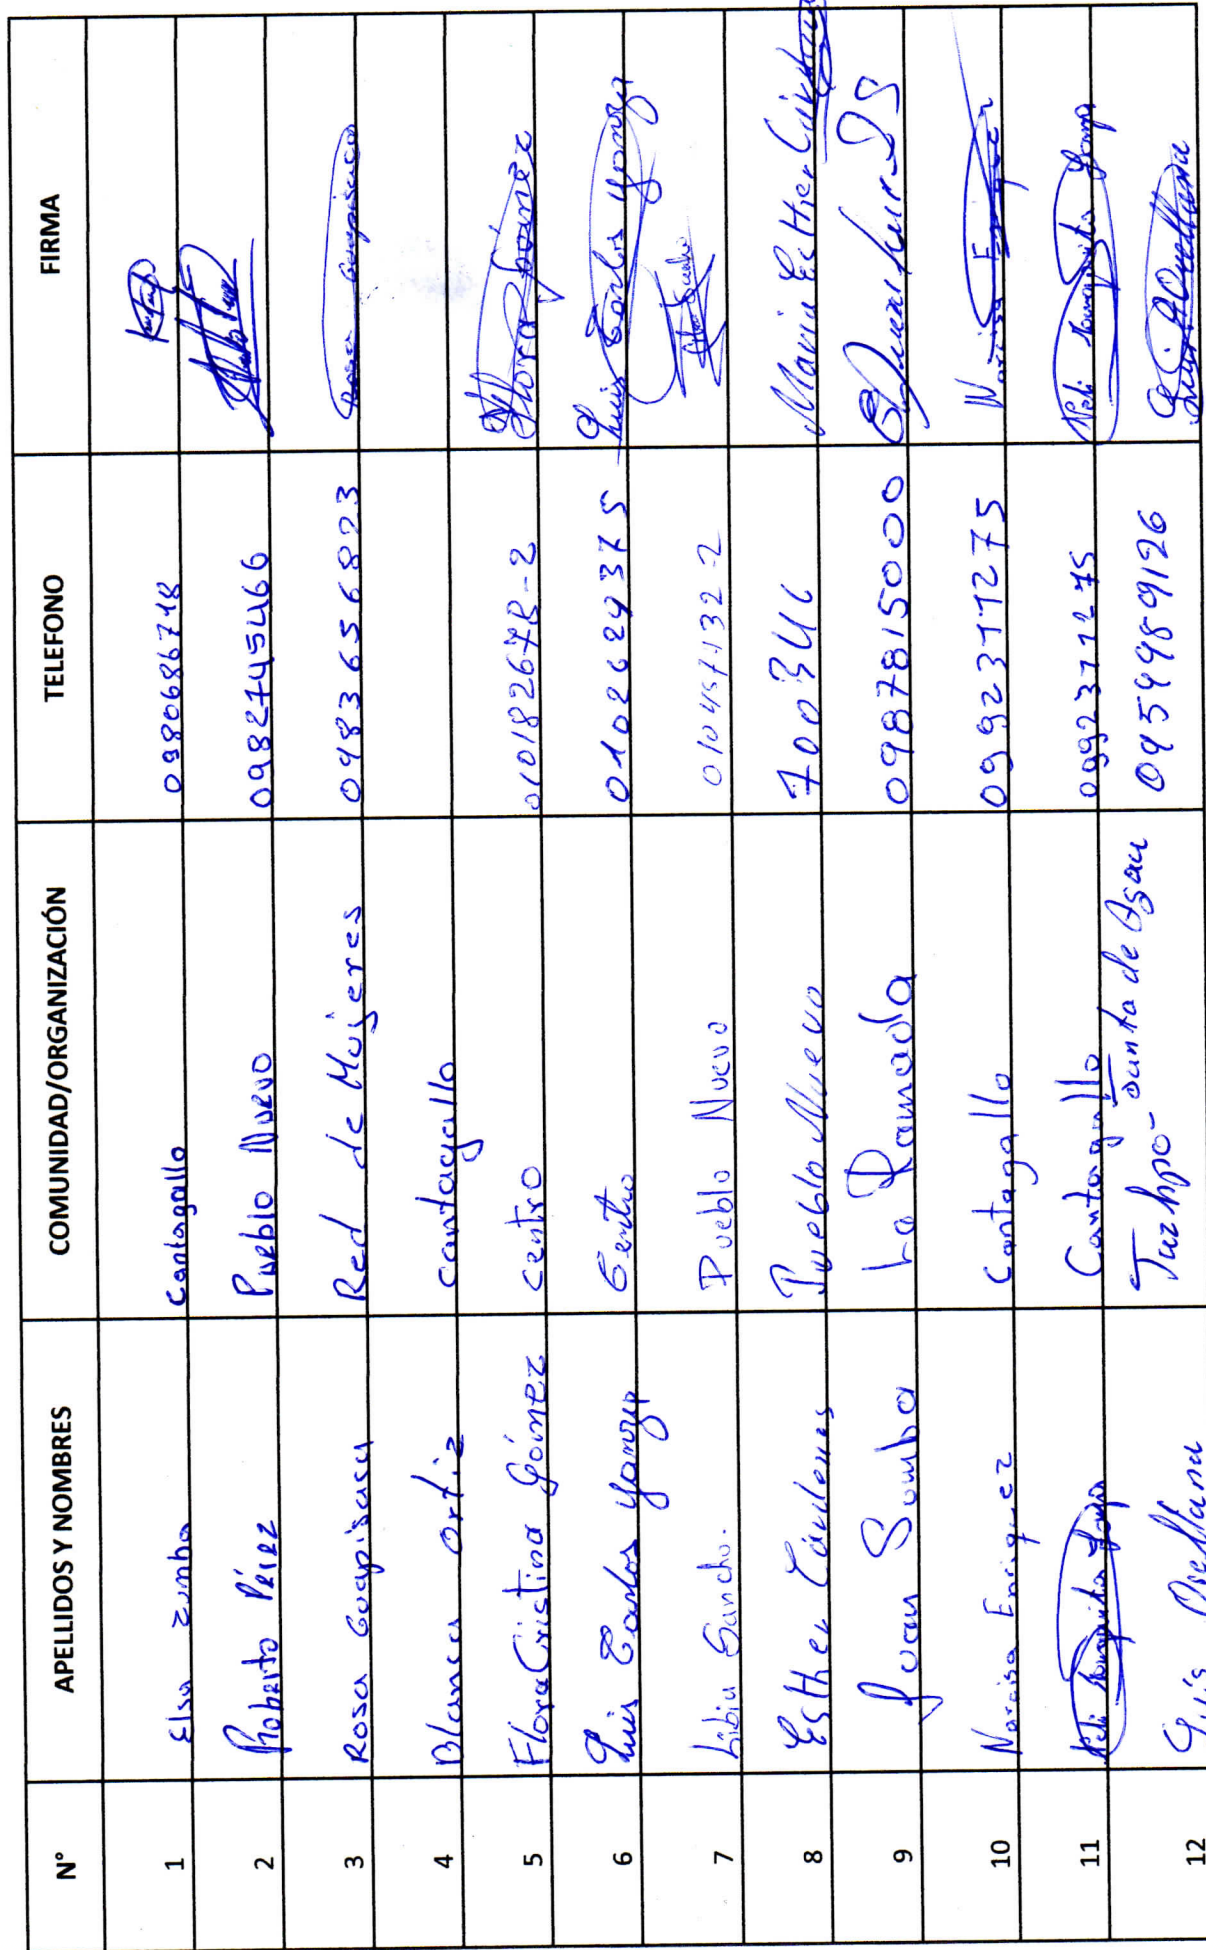 N° APELLIDOS Y NOMBRES COMUNIDAD/ORGANIZACIÓN TELEFONO FIRMA
1 Elsa Zumba Cantagallo 0980686718
2 Roberto Pérez Pueblo Nuevo 0982745466
3 Rosa Guapisaca Red de Mujeres 0483656823 Rosa Guapisaca
4 Blanca Ortiz Cantagallo
5 Flora Cristina Gómez centro 01018267R-2 Flora Gómez
6 Luis Carlos Yanza Centro 0102629375 Luis Carlos Yanza
7 Libia Sancho. Pueblo Nuevo 010457132-2
8 Esther Cardenas Pueblo Nuevo 700346 Maria Esther
9 Juan Sumba La Ramada 0987815000
10 Narcisa Enriquez Cantagallo 0992311275 Narcisa Enriquez
11 Cantagallo 0992311275
12 Luis Orellana Tarhpo - Junta de Agau 0959989126 Luis Orellana